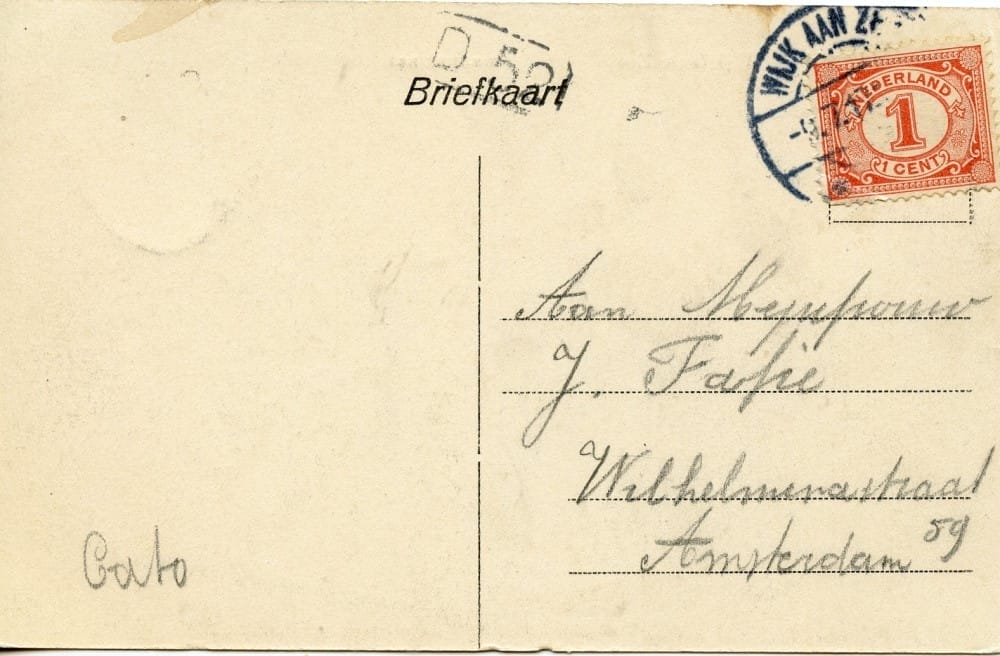 D 50
Briefkaart
WIJK AAN ZEE
NEDERLAND
1
1 CENT
Aan Mejufrouw
J.
Wilhelminastraat
59
Amsterdam
Cato